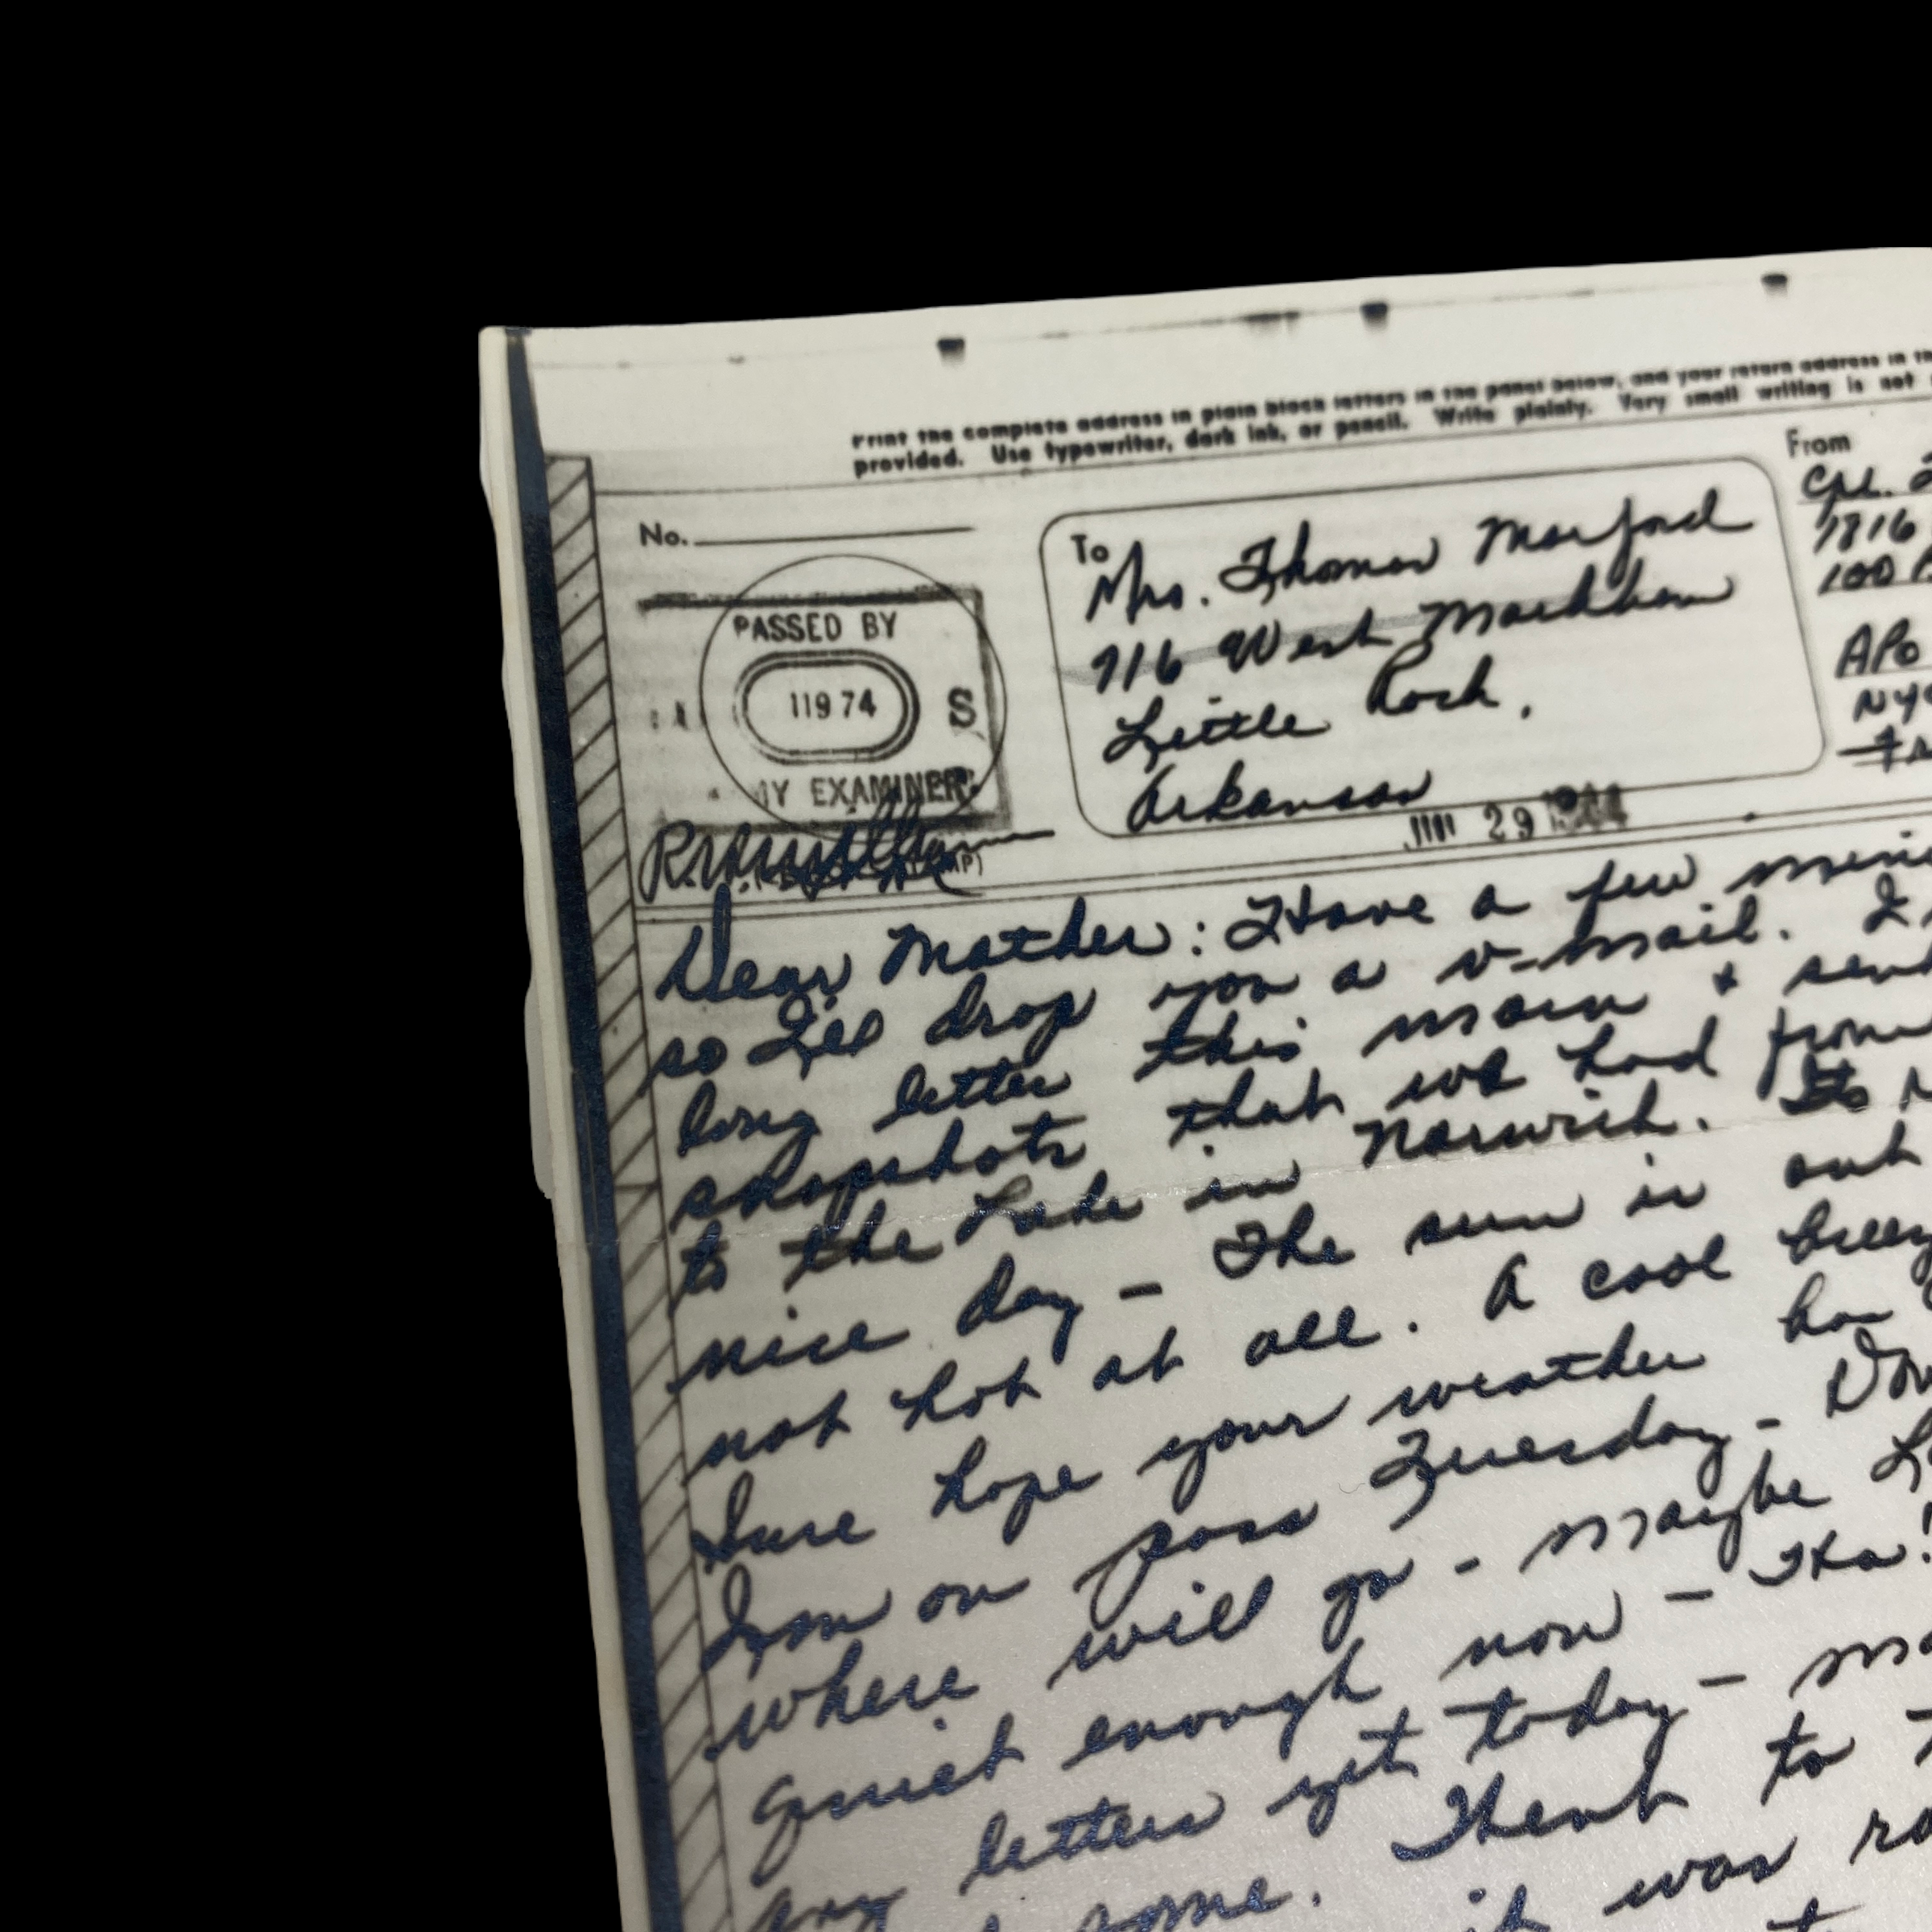 Print the complete address in plain block letters in the panel below, and your return address in
provided. Use typewriter, dark ink, or pencil. Write plainly. Very small writing is not
No.
PASSED BY
11974 S
MY EXAMINER
To
Mrs. Thomas Morford
716 West Markham
Little Rock,
Arkansas
From
Cpl.
1816
100
APO
NYC
29 1944
Dear Mother: Have a few
so I'll drop you a v-mail. I
long letter this morn + sent
snapshots that we had from
to the Lake in Norwich. Its
nice day - The sun is out
not hot at all. A cool
Sure hope your weather
I'm on pass Tuesday -
where will go - maybe
quiet enough now - Ha!
any letters yet today -
some. Went to
it was